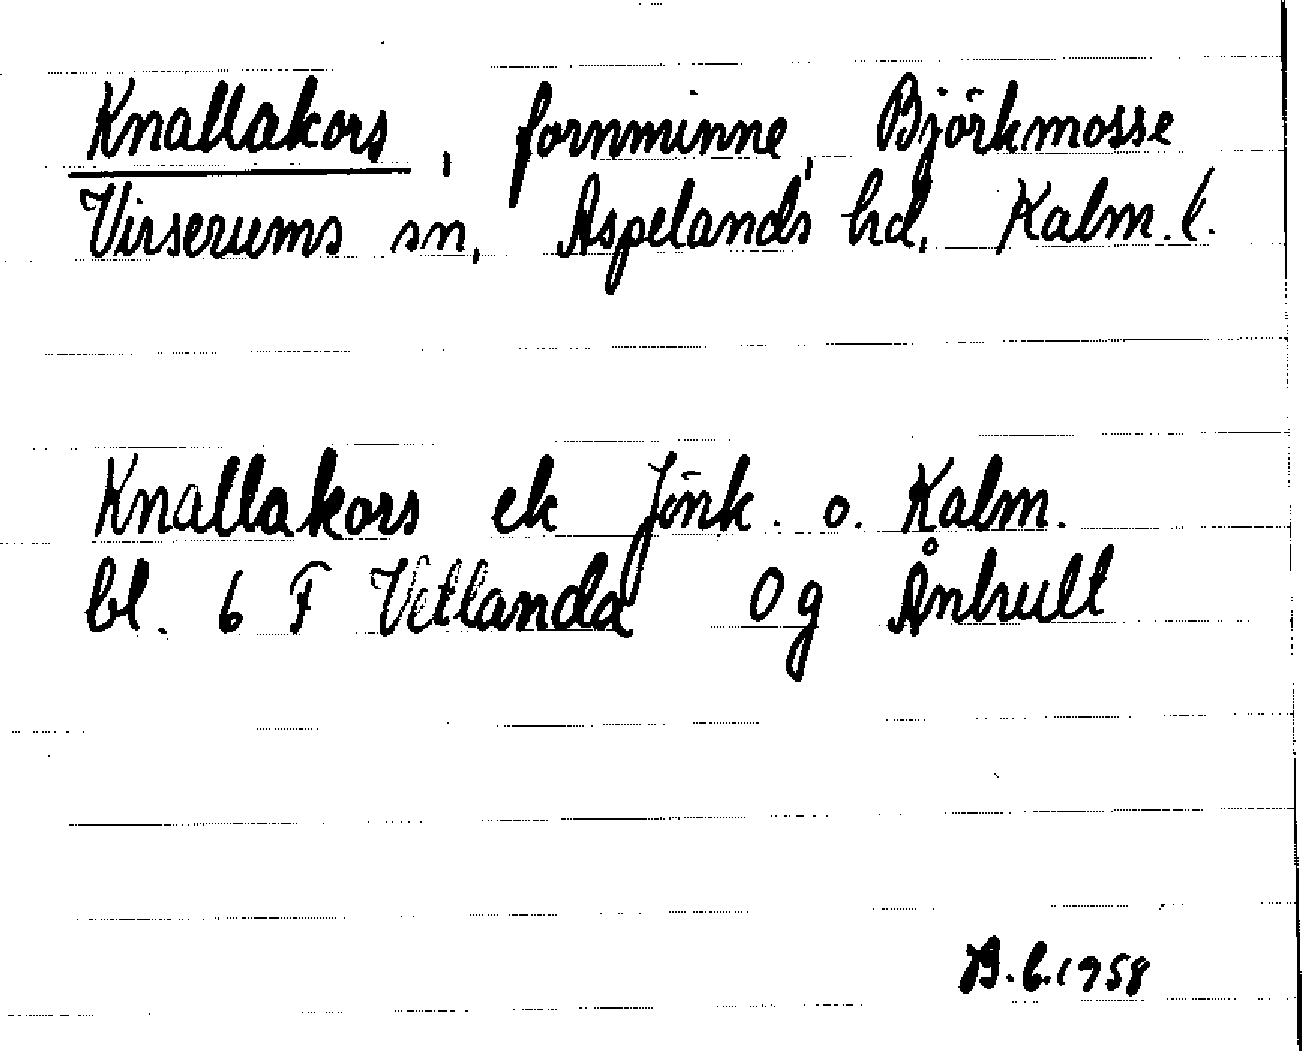 Knallakors, fornminne, Björkmosse
Virserums sn, Aspelands hd, Kalm. l.
Knallakors ek Jönk. o. Kalm.
bl. 6 F Vetlanda 0 g Ånhult
B.L. 1958